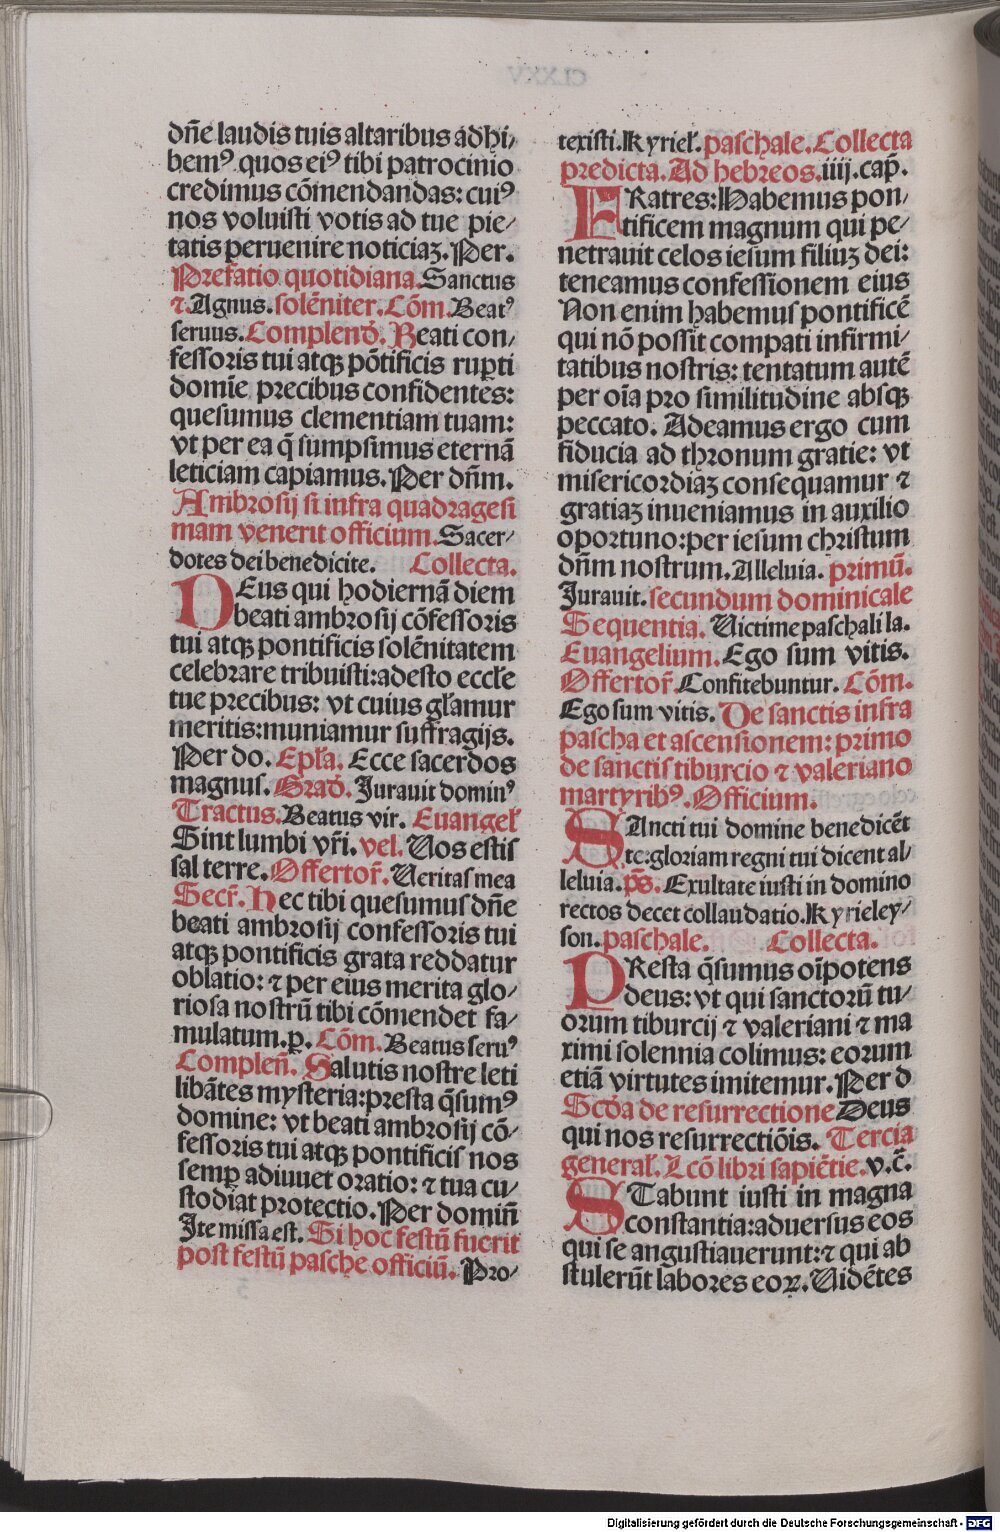 dñe laudis tuis altaribus adhi⸗
bemꝰ quos eiꝰ tibi patrocinio
credimus cõmendandas: cuiꝰ
nos voluisti votis ad tue pie⸗
tatis peruenire noticiaꝫ. Per.
Prefatio quotidiana. Sanctus
⁊. Agnus. solẽniter. Cõm. Beatꝰ
seruus. Complend. Beati con⸗
fessoris tui atqꝫ põtificis rup̱ti
domĩe precibus confidentes:
quesumus clementiam tuam:
vt per ea q̃ sumpsimus eternã
leticiam capiamus. Per dñm.
Ambrosij si infra quadragesi
mam venerit officium. Sacer⸗
dotes dei benedicite. Collecta.
DEus qui hodiernã diem
beati ambrosij cõfessoris
tui atqꝫ pontificis solẽnitatem
celebrare tribuisti: adesto eccl̃e
tue precibus: vt cuius gl̃amur
meritis: muniamur suffragijs.
Per do. Epl̃a. Ecce sacerdos
magnus. Grad. Jurauit dominꝰ
Tractus. Beatus vir. Euangel̃
Sint lumbi vr̃i. vel. Uos estis
sal terre. Offertor̃. Ueritas mea
Secr̃. Hec tibi quesumus dñe
beati ambrosij confessoris tui
atqꝫ pontificis grata reddatur
oblatio: ⁊ per eius merita glo⸗
riosa nostrũ tibi cõmendet fa⸗
mulatum. p̱. Cõm. Beatus seruꝰ
Compleñ. Salutis nostre leti
libãtes mysteria: presta q̃sumꝰ
domine: vt beati ambrosij cõ⸗
fessoris tui atqꝫ pontificis nos
semp̱ adiuuet oratio: ⁊ tua cu⸗
stodiat protectio. Per domiñ
Jte missa est. Si hoc festũ fuerit
post festũ pasche officiũ. Pro⸗
texisti. Kyriel̃. paschale. Collecta
predicta. Ad hebreos. iiij. cap̃.
FRatres: Habemus pon⸗
tificem magnum qui pe⸗
netrauit celos iesum filiuꝫ dei:
teneamus confessionem eius
Non enim habemus pontificẽ
qui nõ possit compati infirmi⸗
tatibus nostris: tentatum autẽ
per oĩa pro similitudine absqꝫ
peccato. Adeamus ergo cum
fiducia ad thronum gratie: vt
misericordiaꝫ consequamur ⁊
gratiaꝫ inueniamus in auxilio
oportuno: per iesum christum
dñm nostrum. Alleluia. primũ.
Jurauit. secundum dominicale
Sequentia. Uictime paschali la.
Euangelium. Ego sum vitis.
Offertor̃. Confitebuntur. Cõm.
Ego sum vitis. De sanctis infra
pascha et ascensionem: primo
de sanctis tiburcio ⁊ valeriano
martyribꝰ. Officium.
SAncti tui domine benedicẽt
te: gloriam regni tui dicent al⸗
leluia. p̃s. Exultate iusti in domino
rectos decet collaudatio. Kyrieley⸗
son. paschale. Collecta.
PResta q̃sumus oĩpotens
deus: vt qui sanctorũ tu⸗
orum tiburcij ⁊ valeriani ⁊ ma
ximi solennia colimus: eorum
etiã virtutes imitemur. Per d
Scda de resurrectione Deus
qui nos resurrectiõis. Tercia
general̃. Lcõ libri sapiẽtie. v. c̃.
STabunt iusti in magna
constantia: aduersus eos
qui se angustiauerunt: ⁊ qui ab
stulerũt labores eoꝝ. Uidẽtes
Digitalisierung gefördert durch die Deutsche Forschungsgemeinschaft - DFG